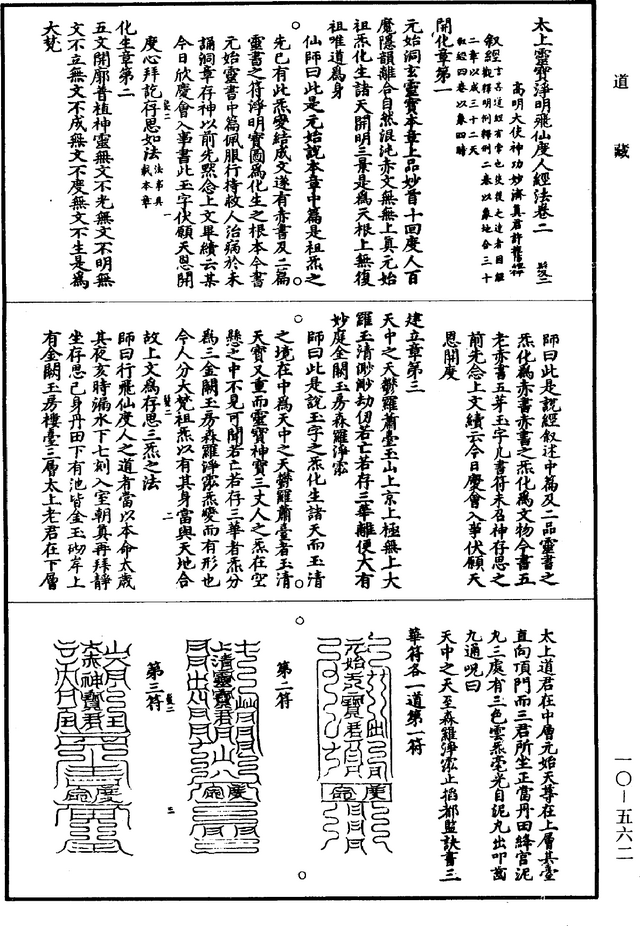 道藏
太上靈寶淨明飛仙度人經法卷二
髮二
高明大使神功妙濟真君許旌陽釋
叙經
二章以成三十二天
叙經四卷以象四時
開化章第一
元始洞玄靈寶本章上品妙首十回度人百
魔隱韻離合自然混沌赤文無無上真元始
祖炁化生諸天開明三景是為天根上無復
祖唯道為身
仙師曰此是元始說本章中篇是祖炁之
先已有此炁變結成文遂有赤書及二篇
靈書之符淨明寶圖為化生之根本今書
元始靈書中篇佩服行持救人治病於未
誦洞章存神以前先默念上文畢續云某
今日欣慶會入事書此玉字伏願天恩開
度心拜訖存思如法
法事具載本章
化生章第二
五文開廓普植神靈無文不光無文不明無
文不立無文不成無文不度無文不生是為
大梵
師曰此是說經叙述中篇及二品靈書之
炁化為赤書赤書之炁化為文物今書五
老赤書五芽玉字凡書符未召神存思之
前先念上文續云今日慶會入事伏願天
恩開度
建立章第三
天中之天鬱羅蕭臺玉山上京上極無上大
羅玉清渺渺劫仞若亡若存三華離便大有
妙庭金闕玉房森羅淨泓
師曰此是說玉字之炁化生諸天而玉清
之境在中為天中之天鬱羅蕭臺者玉清
天寶又重而靈寶神寶三丈人之炁在空
懸之中不見可聞若亡若存三華者炁分
為三金闕玉房森羅淨泓炁變而有形也
今人分大梵祖炁以有其身當與天地合
故上文為存思三炁之法
師曰行飛仙度人之道者當以本命太歲
其夜亥時漏水下七刻入室朝真再拜靜
坐存思己身丹田下有池皆金玉砌岸上
有金闕玉房樓臺三層太上老君在下層
太上道君在中層元始天尊在上層其臺
直向頂門而三君所坐正當丹田絳宮泥
丸三處有三色雲炁毫光自泥丸出叩齒
九通呪曰
天中之天至森羅淨泓止掐都監訣書三
華符各一道第一符
元始天寶君
度命
第二符
上清靈寶君
度命
第三符
太赤神寶君
度命
一〇—五六二